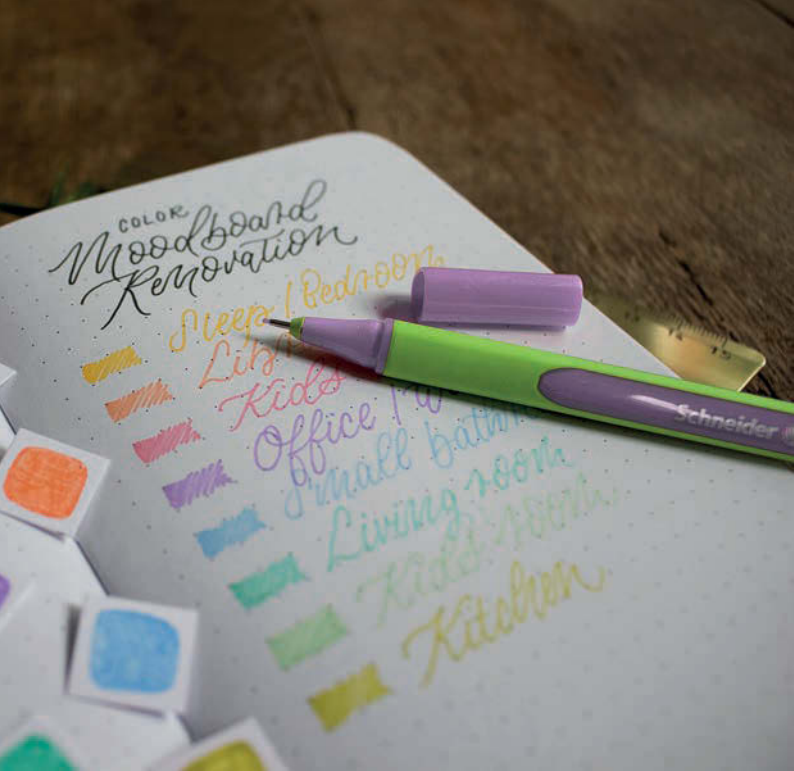 COLOR
Moodboard
Renovation
Sleep / Bedroom
Kids
Office /
Small
Living room
Kids room
Kitchen
Schneider